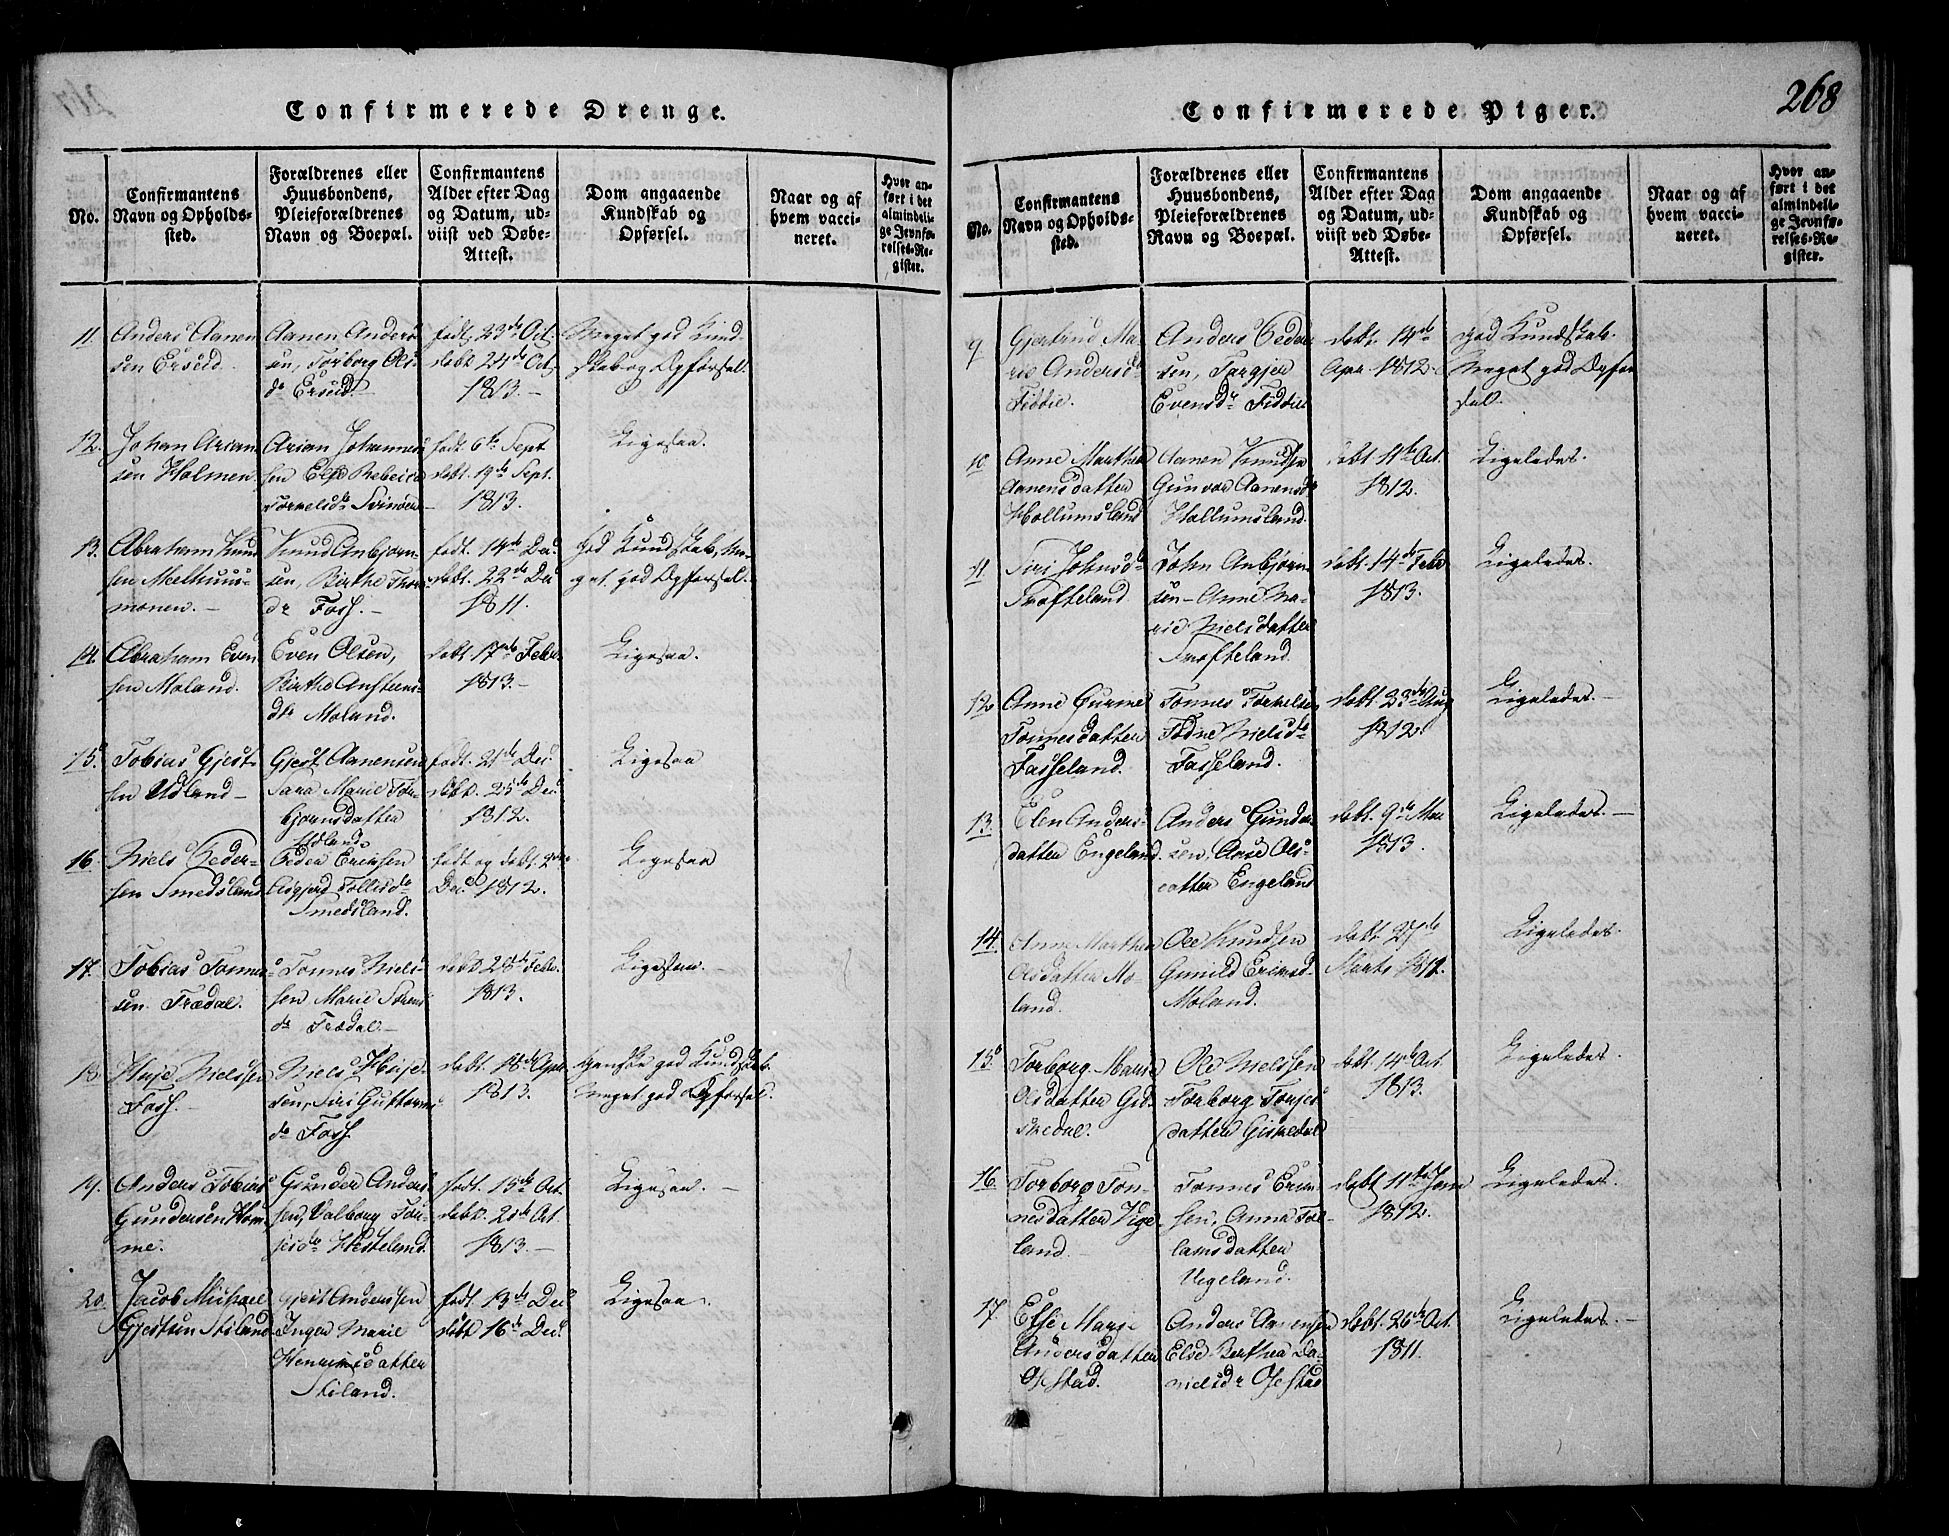 268
Confirmerede Drenge.
No.
Confirmantens
Navn og Opholds-
sted.
Forældrenes eller
Huusbondens,
Pleieforældrenes
Navn og Boepæl.
Confirmantens
Alder efter Dag
og Datum, ud-
viist ved Døbe-
Attest.
Dom angaaende
Kundskab og
Opførsel.
Naar og af
hvem vacci-
neret.
Hvor an-
ført i det
almindeli-
ge Jevnfø-
relses-Re-
gister.
11.
Anders Aanen
sen Erseld.
Aanen Anders
sen, Torborg Ols
dr Erseld.
født 23de Oct.
døbt 24de Oct.
1813.
Meget god Kund
skab og Opførsel.
12.
Johan Arian
sen Holmen.
Arian Johannes
sen Else Rebecca
født 6te Sept
døbt. 19de Sept.
1813.
Ligesaa.
13.
Abraham Knud
sen Meelhuus-
monen.
Knud Anbjørn
sen, Birthe Thor
dr Foss.
født. 14de Dec.
døbt. 22de Dec
1811.
god Kundskab, me
get god Opførsel.
14.
Abraham Even
sen Moland.
Even Olsen,
Birthe Ansteens
dtr Moland.
døbt. 17de Febr.
1813.
Ligesaa.
15.
Tobias Gjest
sen Udland
Gjest Aanensen
Sara Marie Tor
bjornsdatter
Udland
født. 21de Dec.
døbt. 25de Dec.
1812.
Ligesaa
16.
Niels Peder-
sen Smedsland
Peder Ericksen
Smedsland.
født og døbt
Dec. 1812.
Ligesaa
17.
Tobias Tønne
sen Trædal.
Tønnes Niels
sen Marie Søren
dr Trædal.
døbt 28de Febr.
1813.
Ligesaa.
18.
Huje Nielssen
Foss.
Niels Huje
sen, Siri Guttorms
dr Foss.
døbt. 18de Apr
1813.
Ganske god Kundskab.
meget god Opførsel.
19.
Anders Tobias
Gundersen Hom
me.
Gunder Anders
sen, Valborg Tor
jesdr Hesteland.
født. 15de Oct.
døbt. 21de Oct.
1813.
Ligesaa.
20.
Jacob Michael
Gjestsen Stiland
Gjest Anderssen
Inger Marie
Henriksdatter
Stiland.
født. 13de Dec.
døbt 16de Dec.
Ligesaa.
Confirmerede Piger.
No.
Confirmantens
Navn og Opholds-
sted.
Forældrenes eller
Huusbondens,
Pleieforældrenes
Navn og Boepæl.
Confirmantens
Alder efter Dag
og Datum, ud-
viist ved Døbe-
Attest.
Dom angaaende
Kundskab og
Opførsel.
Naar og af
hvem vacci-
neret.
Hvor an-
ført i det
almindeli-
ge Jevnfø-
relses-Re-
gister.
9.
Gjertrud Ma-
rie Andersdr
Fiddie.
Anders Peder
sen, Torgjer
Evensdr Fiddie
døbt 14de
Apr. 1812.
god Kundskab.
Meget god Opfør
sel.
10.
Anne Marthea
Aanensdatter
Hollumsland
Aanen Knudsen
Gunvor Aanensdr
Hollumsland.
døbt. 11te Oct.
1812.
Ligeledes.
11.
Siri Johnsdr
Trofteland
John Anbjørn
sen Anne Ma-
rie Nielsdatter
Trofteland.
døbt. 14de Febr
1813.
Ligeledes.
12
Anne Gurine
Tønnesdatter
Fasseland.
Tønnes Torkelsen
Todne Nielsdr
Fasseland.
døbt. 23de Aug
1812.
Ligeledes.
13.
Elen Anders-
datter Engeland.
Anders Gunder
sen, Aase Ols-
datter Engeland
døbt. 9de Mai
1813.
Ligeledes.
14.
Anne Marthea
Olsdatter Mo-
land.
Ole Knudsen
Gunild Eriksd.
Moland.
døbt 27de
Marts 1812.
Ligeledes.
15.
Torborg Marie
Olsdatter Gis-
kedal.
Ole Nielssen
Torborg Torjes
datter Giskedal
døbt 14de Oct.
1813.
Ligeledes.
16.
Torborg Tøn-
nesdatter Vige
land.
Tønnes Erick
sen, Anna Tol-
lamsdatter
Vigeland.
døbt 11te Jan
1812.
Ligeledes.
17.
Else Marie
Andersdatter
Ose stad.
Anders Aanensen
Else Berthea Da-
nielsdr Ose stad
døbt. 26de Oct.
1811.
Ligeledes.